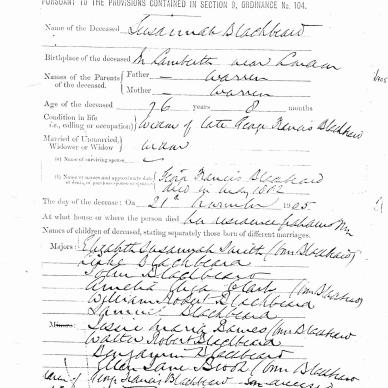 PURSUANT TO THE PROVISIONS CONTAINED IN SECTION 9, ORDINANCE No. 104.
Name of the Deceased Susannah Blackbeard
Birthplace of the deceased In Lambeth near London
Names of the Parents of the deceased. Father — Warren
Mother — Warren
Age of the deceased 76 years 8 months
Condition in life (i.e., calling or occupation) Widow of late George Francis Blackbeard
Married or Unmarried, Widower or Widow widow
(a) Name of surviving spouse
(b) Name or names and approximate date of death, of previous spouse or spouses George Francis Blackbeard
died in May
The day of the decease: On 21st November 1905
At what house or where the person died her residence
Names of children of deceased, stating separately those born of different marriages.
Majors: Elizabeth Susannah Smith (born Blackbeard)
Blackbeard
John Blackbeard
Amelia Eliza Clark (born Blackbeard)
William Robert Blackbeard
Samuel Blackbeard
Minors: Jessie Maria (born Blackbeard
Walter Robert Blackbeard
Benjamin Blackbeard
Ellen Jane (born Blackbeard
George Francis Blackbeard